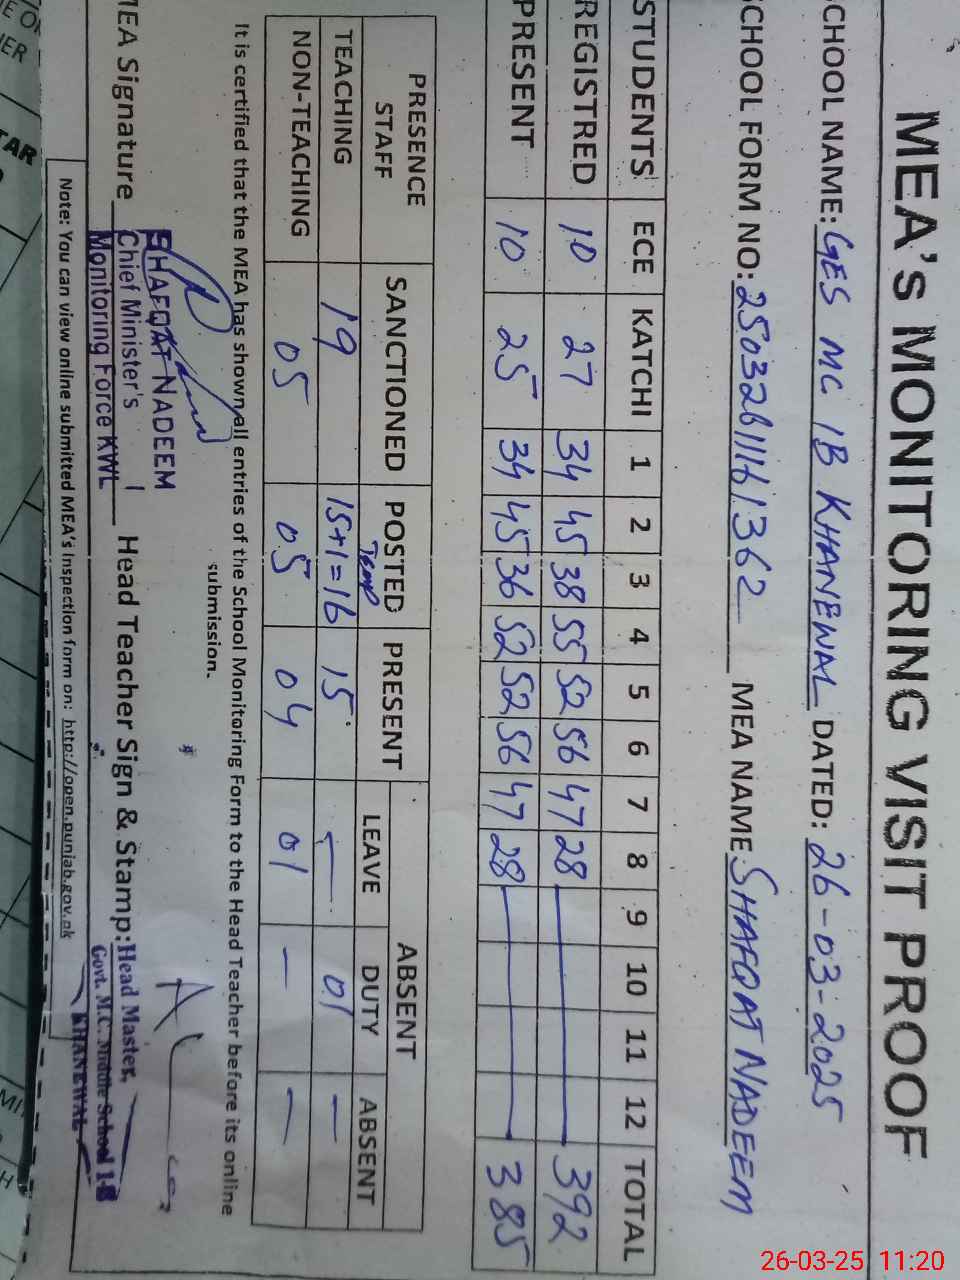 MEA's MONITORING VISIT PROOF
SCHOOL NAME: GES MC 1B KHANEWAL DATED: 26-03-2025
SCHOOL FORM NO: 25032811161362 MEA NAME SHAFQAT NADEEM
STUDENTS ECE KATCHI 1 2 3 4 5 6 7 8 9 10 11 12 TOTAL
REGISTRED 10 27 34 45 38 55 52 56 47 28 392
PRESENT 10 25 34 45 36 52 52 56 47 28 385
PRESENCE STAFF SANCTIONED POSTED PRESENT ABSENT
LEAVE DUTY ABSENT
Temp
TEACHING 19 15+1=16 15 — 01 —
NON-TEACHING 05 05 04 01 — —
It is certified that the MEA has shown all entries of the School Monitoring Form to the Head Teacher before its online
submission.
MEA Signature Head Teacher Sign & Stamp:
SHAFQAT NADEEM
Chief Minister's
Monitoring Force KWL
Head Master,
Govt. M.C. Middle School 1-B
KHANEWAL
Note: You can view online submitted MEA's Inspection form on: http://open.punjab.gov.pk
26-03-25 11:20